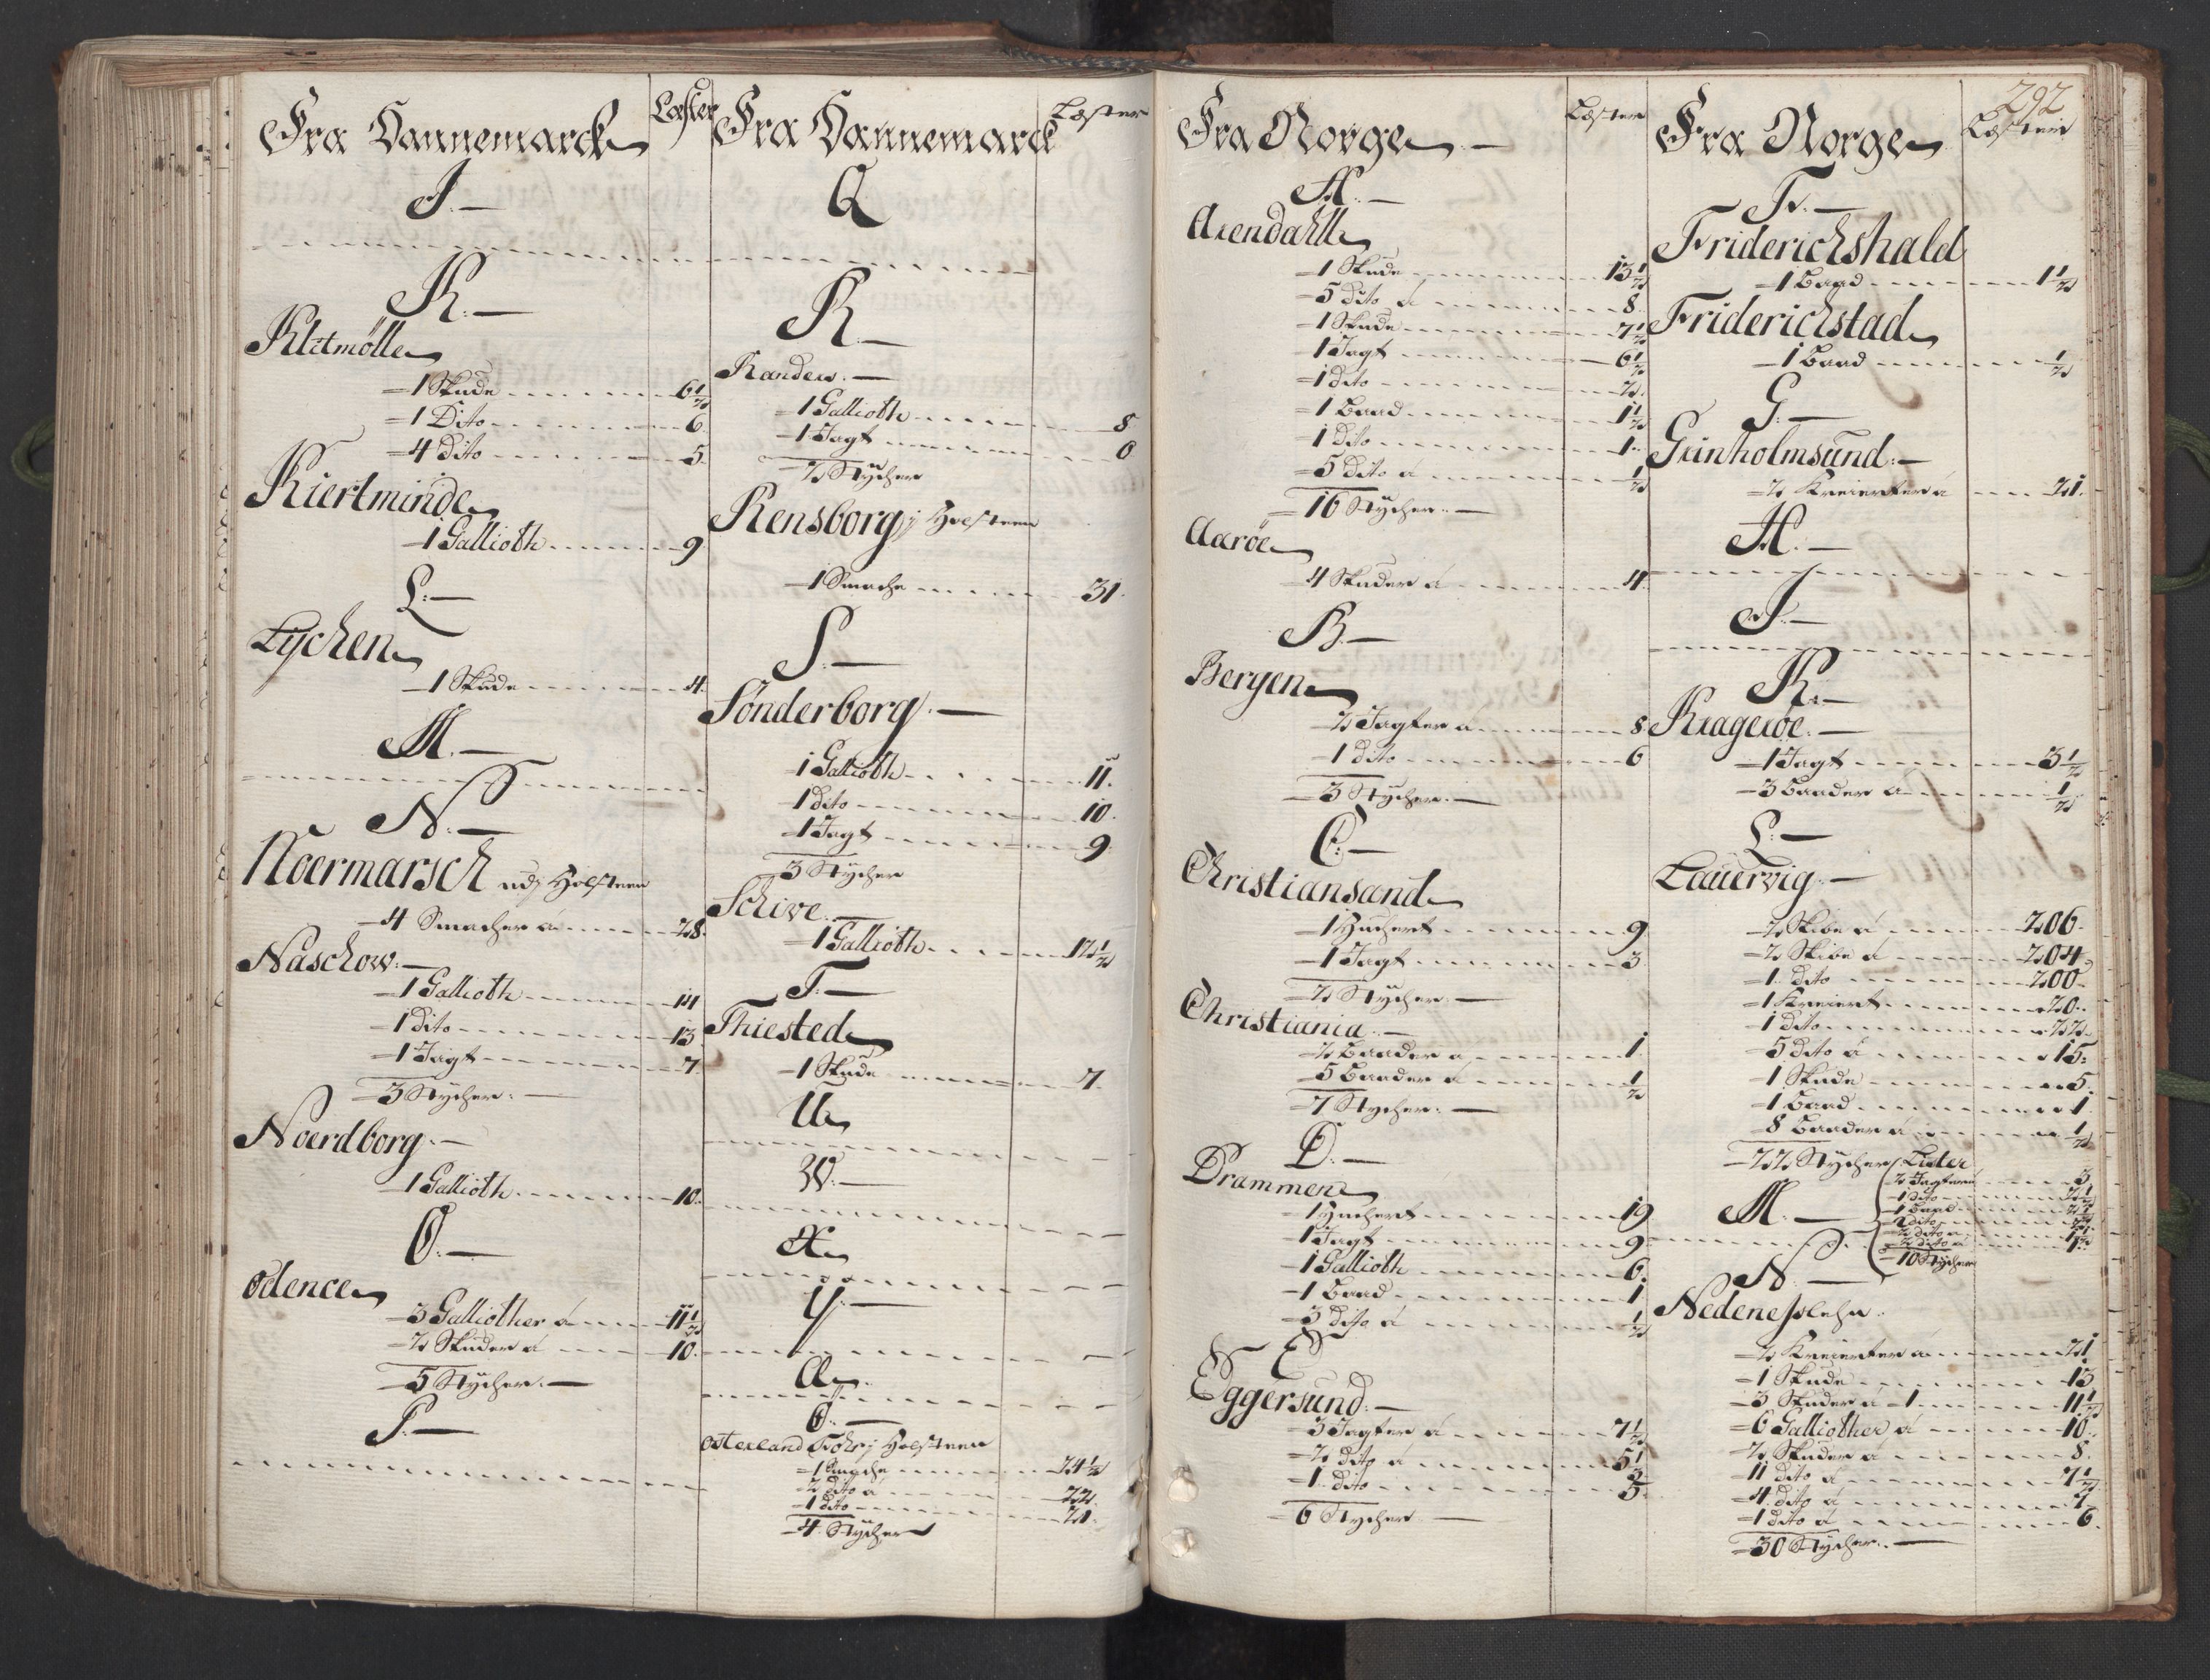 Fra Dannemarck Læster
J.
K.
Klitmølle
1 Skude 6½
1 Dito 6.
4 dito 5.
Kiertminde
1 Gallioth 9
L.
Lychen
1 Skude 4.
M.
N.
Noermarsch udj Holsteen
4 Smacher á 28.
Naschow.
1 Gallioth 14
1 dito 13
1 Jagt 7.
3 Stÿcher.
Noerdborg.
1 Gallioth 10.
O.
Odence
3 Galliother á 11½
2 Skuder á 10.
5 Stÿcher.
P.
Fra Dannemarck Læster
Q
R.
Randers.
1 Gallioth 8
1 Jagt 6
2 Stÿcher
Rensborg j Holsteen
1 Smache 31.
S.
Sønderborg.
1 Gallioth 11.
1 dito 10.
1 Jagt 9.
3 Stÿcher
Schive.
1 Gallioth 12½
T.
Thiested
1 Skude 7.
U
W.
X
Y.
Æ
Ø.
Osterland Föhr j Holsteen
1 Smache 24½
2 dito á 22.
1 dito 21.
4 Stÿcher
292
Fra Norge Læster
A.
Arendahl
1 Skude 13½
5 dito á 8.
1 Skude 7½
1 Jagt 6½
1 dito 2.
1 Baad 1½
1 dito 1.
5 dito á ½
16 Stÿcher.
Aarøe
4 Skuder á 4.
B.
Bergen
2 Jagter á 8
1 dito 6
3 Stÿcher.
C.
Christiansand
1 Huchert 9
1 Jagt 3.
2 Stÿcher.
Christiania.
2 Baader á 1.
5 Baader á ½
7 Stycher.
D.
Drammen
1 Huchert 19
1 Jagt 9.
1 Gallioth 6.
1 Baad 1
3 dito á ½
E
Eggersund.
3 Jagter á 7½
2 dito á 5½
1 dito 5.
6 Stycher.
Fra Norge Læster
F.
Friderichshald
1 Baad 1½
Friderichstad
1 Baad ½
G.
Grinholmsund.
2 Kreierter á 21.
H.
J.
K.
Kragerøe.
1 Jagt 3½
3 Baader á ½
L.
Lauervig.
2 Skibe á 206.
2 Skibe á 204.
1 dito 200.
1 Kreiert 20.
1 dito 22.
5 dito á 15.
1 Skude 5.
1 Baad 1.
8 Baader á ½
22 Stÿcher / Lister
2 Jagter 3.
1 dito 2½
1 Baad
2 dito
2 dito á
2 dito á
10 Stÿcher
M.
N.
Nedenes Lehn.
2 Kreierter á 21
1 Skude 13
3 Skuder á 11½
6 Galliother á 10.
2 Skuder á 8.
11 dito á 7½
4 dito á 7.
1 dito á 6.
30 Stÿcher.